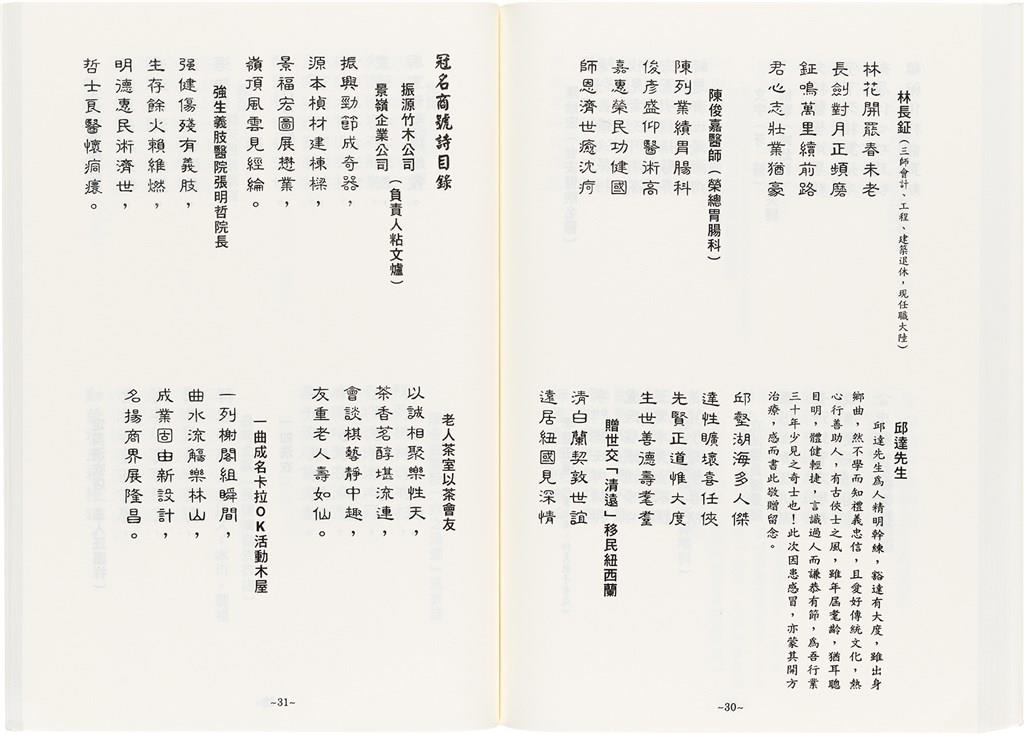 林長鉦（三師會計、工程、建築退休，現任職大陸）
林花開罷春未老
長劍對月正頻磨
鉦鳴萬里續前路
君心志壯業猶豪
陳俊嘉醫師（榮總胃腸科）
陳列業績胃腸科
俊彥盛仰醫術高
嘉惠榮民功健國
師恩濟世癒沈疴
邱達先生
邱達先生為人精明幹練，豁達有大度，雖出身
鄉曲，然不學而知禮義忠信，且愛好傳統文化，熱
心行善助人，有古俠士之風，雖年屆耄齡，猶耳聰
目明，體健輕捷，言識過人而謙恭有節，為吾行業
三十年少見之奇士也！此次因患感冒，亦蒙其開方
治療，感而書此敬贈留念。
邱壑湖海多人傑
達性曠壞喜任俠
先賢正道惟大度
生世善德壽耄耋
贈世交「清遠」移民紐西蘭
清白蘭契敦世誼
遠居紐國見深情
~30~
冠名商號詩目錄
振源竹木公司
景嶺企業公司
（負責人粘文爐）
振興勁節成奇器，
源本楨材建棟樑，
景福宏圖展懋業，
嶺頂風雲見經綸。
強生義肢醫院張明哲院長
强健傷殘有義肢，
生存餘火賴維燃，
明德惠民術濟世，
哲士良醫懷痌瘝。
老人茶室以茶會友
以誠相聚樂性天，
茶香茗醇堪流連，
會談棋藝靜中趣，
友重老人壽如仙。
一曲成名卡拉OK活動木屋
一列榭閣組瞬間，
曲水流觴樂林山，
成業固由新設計，
名揚商界展隆昌。
~31~